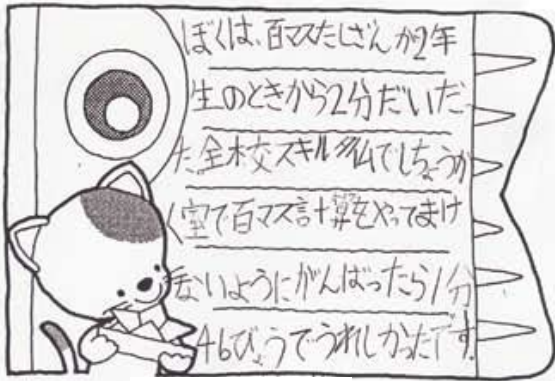 ぼくは、百マスたしざんが2年
生のときから2分だいだっ
た。全校スキルタイムでしちょうか
く室で百マス計算をやってまけ
ないようにがんばったら1分
46びょうでうれしかったです。